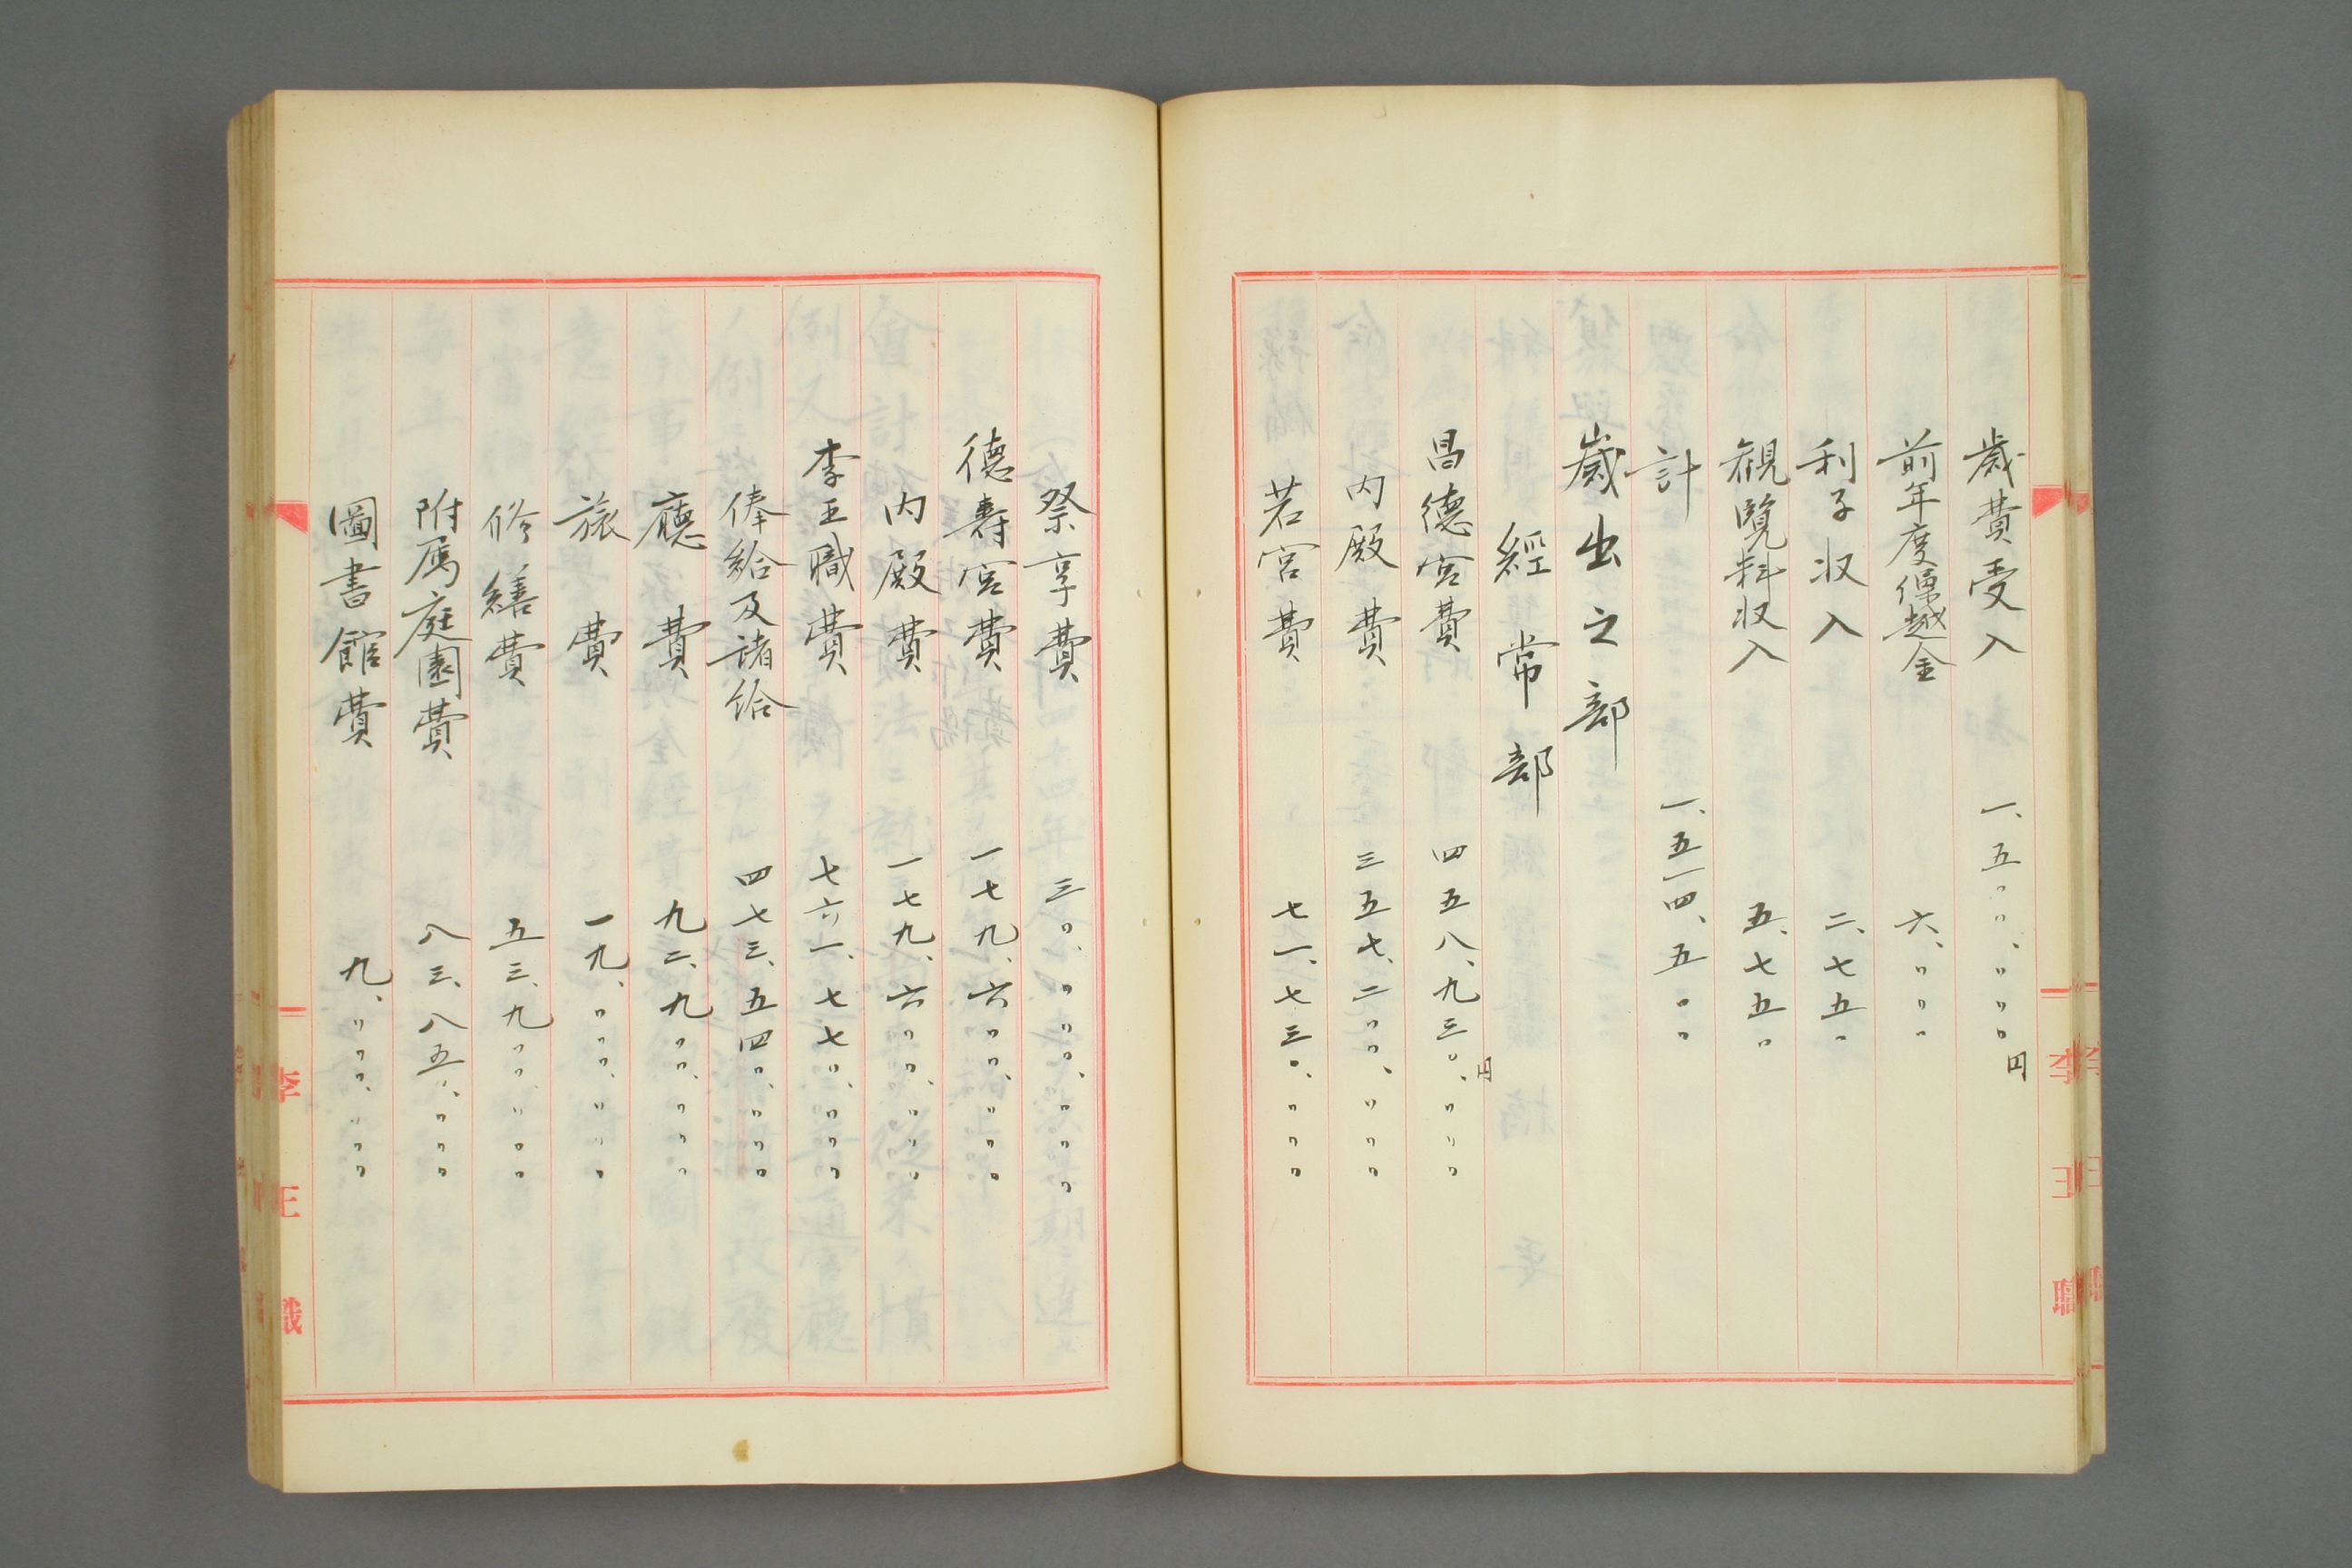 歲費受入 一、五〇〇、〇〇〇円
前年度繰越金 六、〇〇〇
利子収入 二、七五〇
観覧料収入 五、七五〇
計 一、五一四、五〇〇
歲出之部
經常部
昌德宮費 四五八、九三〇、〇〇〇円
内殿費 三五七、二〇〇、〇〇〇
若宮費 七一、七三〇、〇〇〇
祭享費 三〇、〇〇〇、〇〇〇
德寿宮費 一七九、六〇〇、〇〇〇
内殿費 一七九、六〇〇、〇〇〇
李王職費 七六一、七七〇、〇〇〇
俸給及諸給 四七三、五四〇、〇〇〇
廳費 九二、九〇〇、〇〇〇
旅費 一九、〇〇〇、〇〇〇
修繕費 五三、九〇〇、〇〇〇
附属庭園費 八三、八五〇、〇〇〇
圖書館費 九、〇〇〇、〇〇〇
李王職